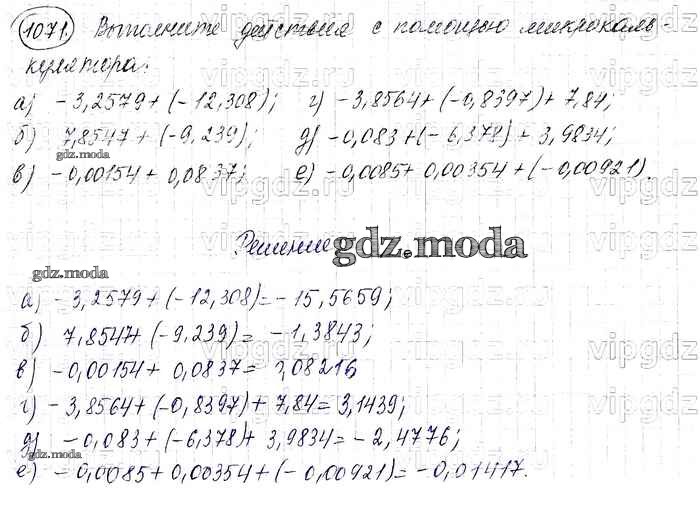 1071. Выполните действия с помощью микрокаль-
кулятора:
а) -3,2579+(-12,308); г) -3,8564+(-0,8397)+7,84;
б) 7,8547+(-9,239); д) -0,083+(-6,378)+3,9834;
gdz.moda
в) -0,00154+0,0837; е) -0,0085+0,00354+(-0,00921).
Решение
gdz.moda
gdz.moda
а) -3,2579+(-12,308)=-15,5659;
б) 7,8547+(-9,239)=-1,3843;
в) -0,00154+0,0837=0,08216
г) -3,8564+(-0,8397)+7,84=3,1439;
д) -0,083+(-6,378)+3,9834=-2,4776;
gdz.moda
е) -0,0085+0,00354+(-0,00921)=-0,01417.
vipgdz